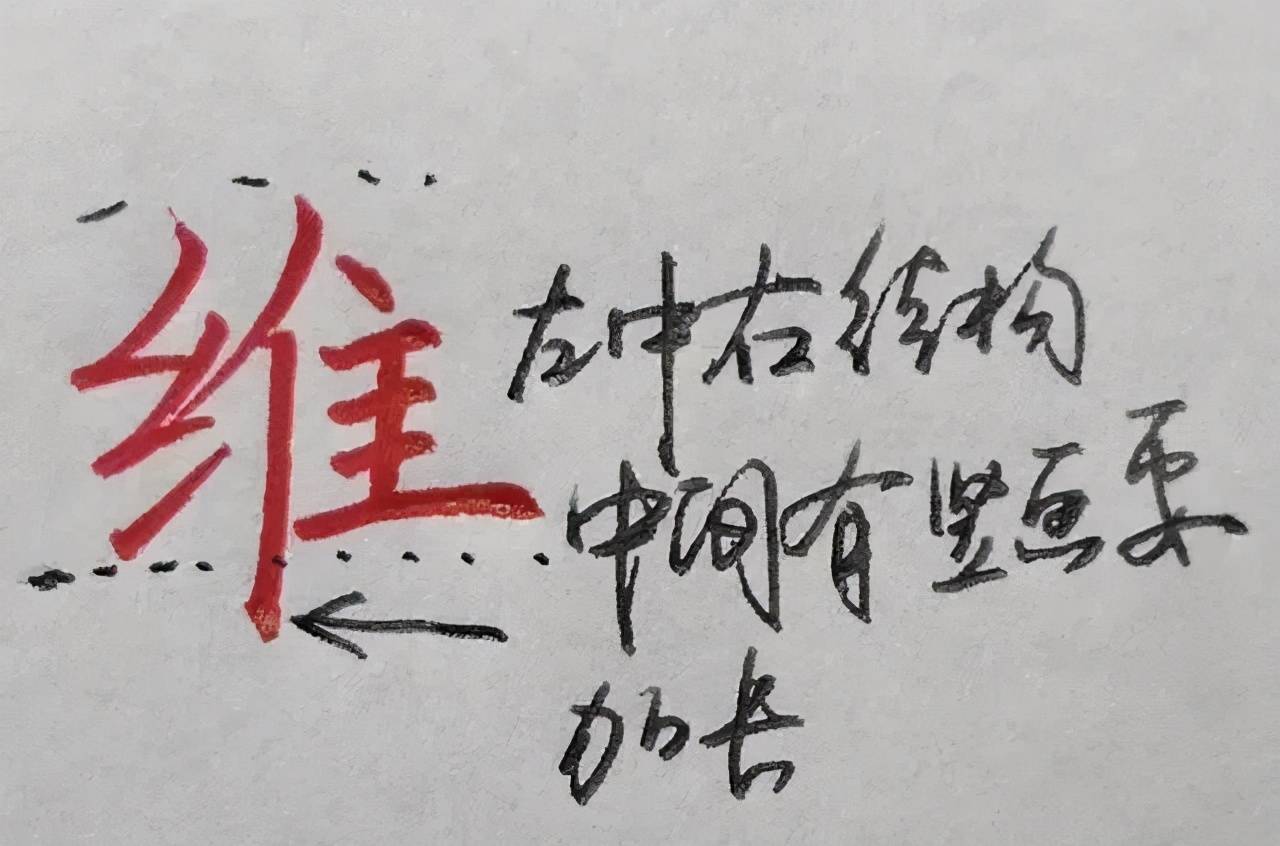 维
左中右结构
中间有竖画要
加长